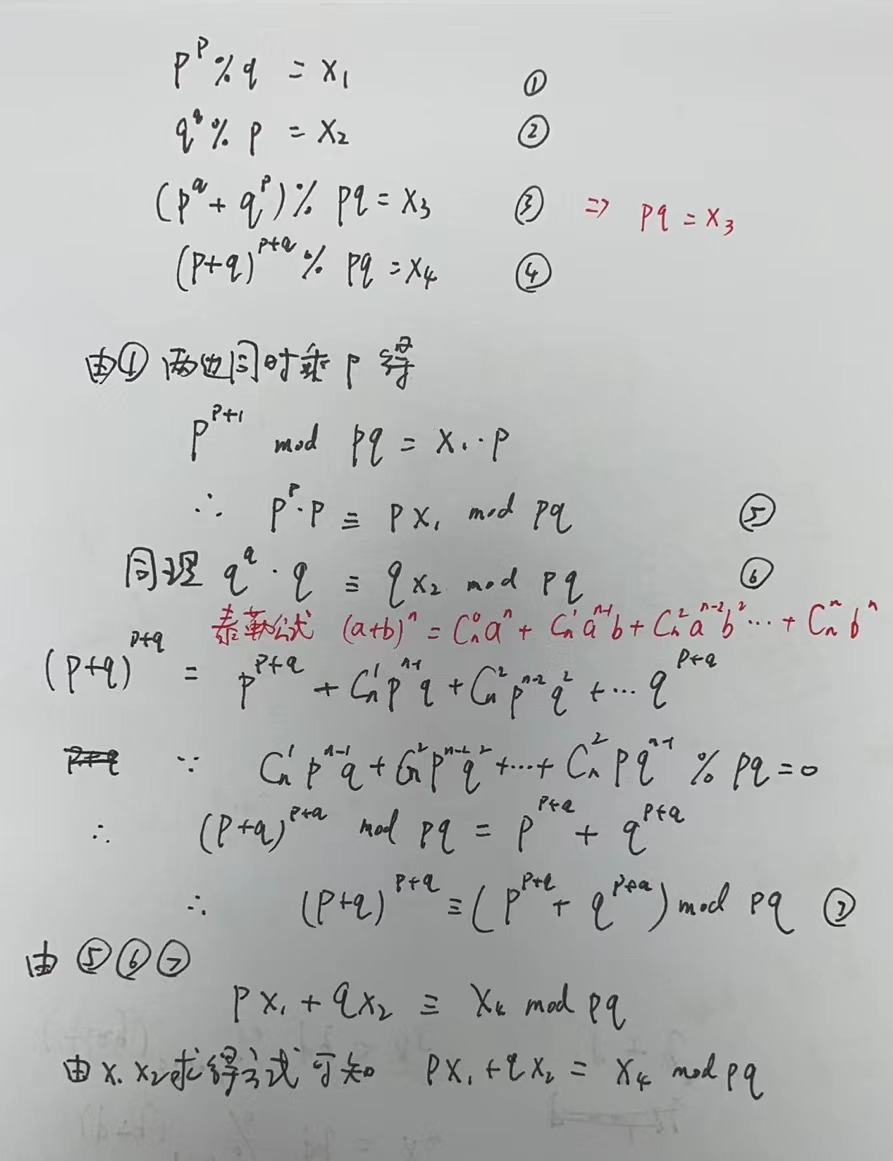 p^p % q = x₁ ①
q^q % p = x₂ ②
(p^q + q^p) % pq = x₃ ③ ⇒ pq = x₃
(p+q)^{p+q} % pq = x₄ ④
由① 两边同时乘 p 得
p^{p+1} mod pq = x₁·p
∴ p^p·p ≡ px₁ mod pq ⑤
同理 q^q·q ≡ qx₂ mod pq ⑥
泰勒公式 (a+b)^n = C_n^0 a^n + C_n^1 a^{n-1}b + C_n^2 a^{n-2}b^2 ⋯ + C_n^n b^n
(p+q)^{p+q} = p^{p+q} + C_n^1 p^{n-1}q + C_n^2 p^{n-2}q^2 + ⋯ q^{p+q}
∵ C_n^1 p^{n-1}q + C_n^2 p^{n-2}q^2 + ⋯ + C_n^2 pq^{n-1} % pq = 0
∴ (p+q)^{p+q} mod pq = p^{p+q} + q^{p+q}
∴ (p+q)^{p+q} ≡ (p^{p+q} + q^{p+q}) mod pq ⑦
由 ⑤⑥⑦
px₁ + qx₂ ≡ x₄ mod pq
由 x₁ x₂求得方式可知 px₁ + qx₂ = x₄ mod pq